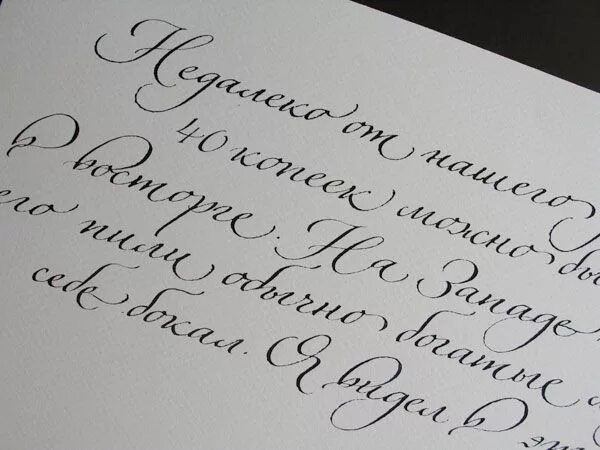 Недалеко от нашего
40 копеек можно бы
в восторге. На Западе
его пили обычно богатые
себе бокал. Я видел в эт